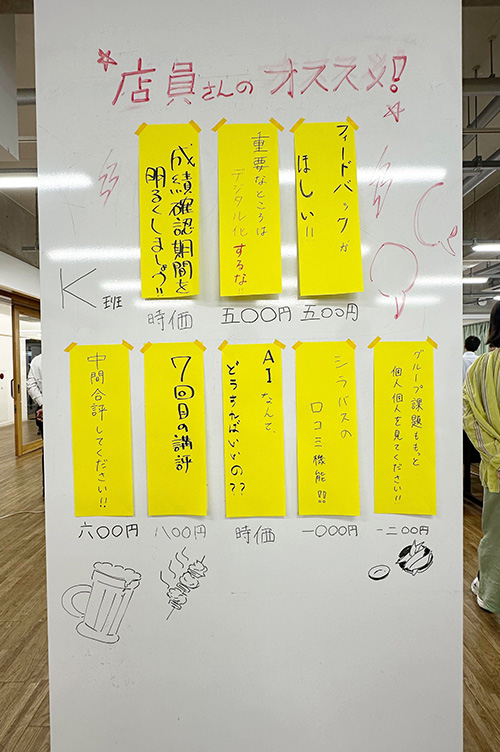 店員さんのオススメ!
フィードバックが
ほしい!!
五〇〇円
重要なところは
デジタル化
するな!!
五〇〇円
成績確認期間を
明るくしましょう!!
時価
K班
グループ課題ももっと
個人個人を見てください!!
一二〇〇円
シラバスの
口コミ機能!!
一〇〇〇円
AIなんて、
どうすればいいの??
時価
7回目の講評
八〇〇円
中間合評してください!!
六〇〇円